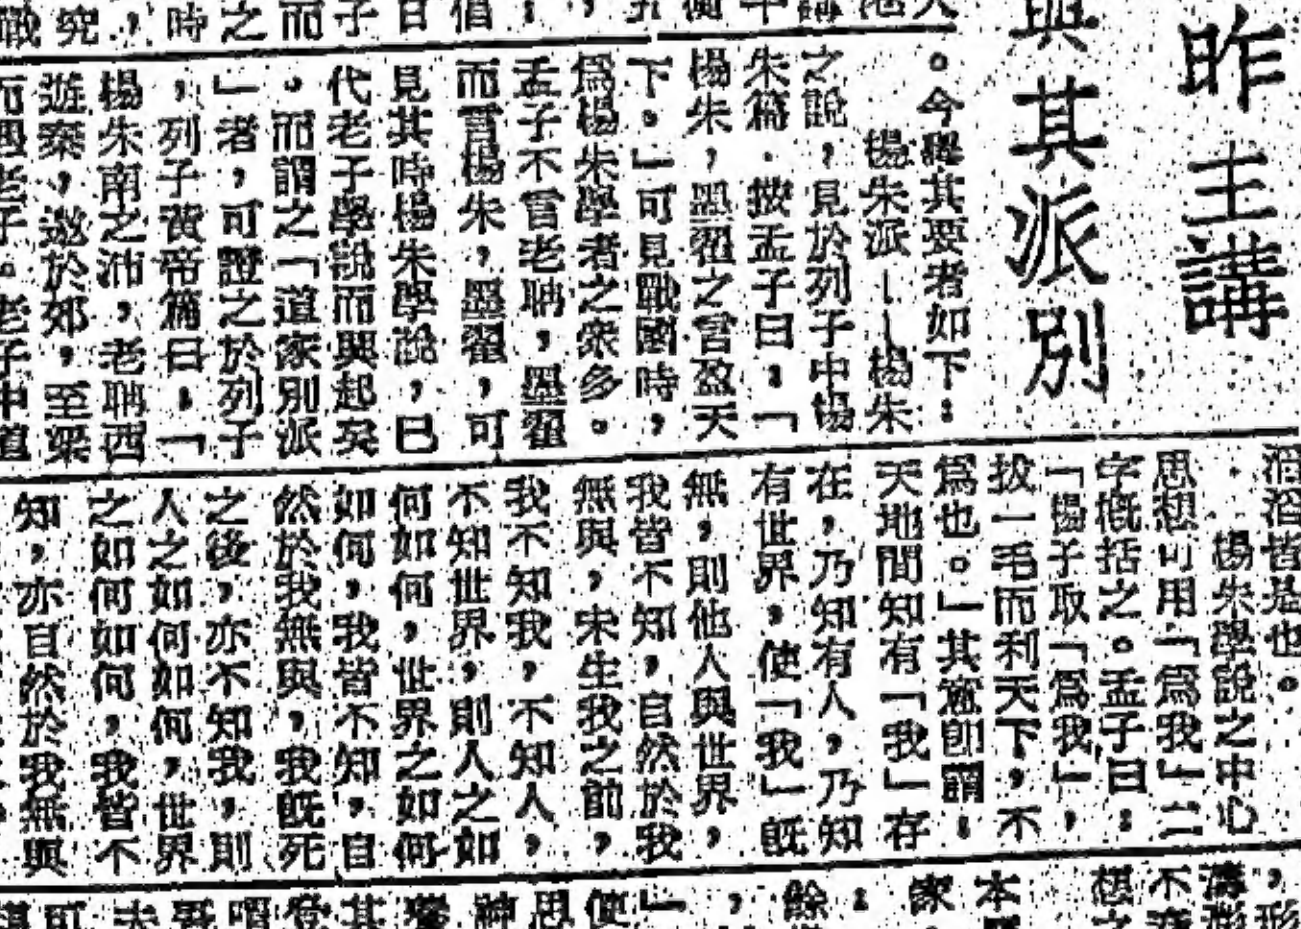 昨主講
與其派別
。今舉其要者如下：
楊朱派——楊朱
之說，見於列子中楊
朱篇．按孟子曰：「
楊朱，墨翟之言盈天
下。」可見戰國時，
爲楊朱學者之衆多。
孟子不言老聃，墨翟
而言楊朱，墨翟，可
見其時楊朱學說，已
代老子學說而興起矣
。而謂之「道家別派
」者，可證之於列子
，列子黃帝篇曰：「
楊朱南之沛，老聃西
遊秦，邀於郊，至梁
而遇老子。老子中道
皆是也。
楊朱學說之中心
思想可用「爲我」二
字概括之。孟子曰：
「楊子取「爲我」，
拔一毛而利天下，不
爲也。」其意即謂：
天地間知有「我」存
在，乃知有人，乃知
有世界，使「我」既
無，則他人與世界，
我皆不知，自然於我
無與，未生我之前，
我不知我，不知人，
不知世界，則人之如
何如何，世界之如何
如何，我皆不知，自
然於我無與，我既死
之後，亦不知我，則
人之如何如何，世界
之如何如何，我皆不
知，亦自然於我無與